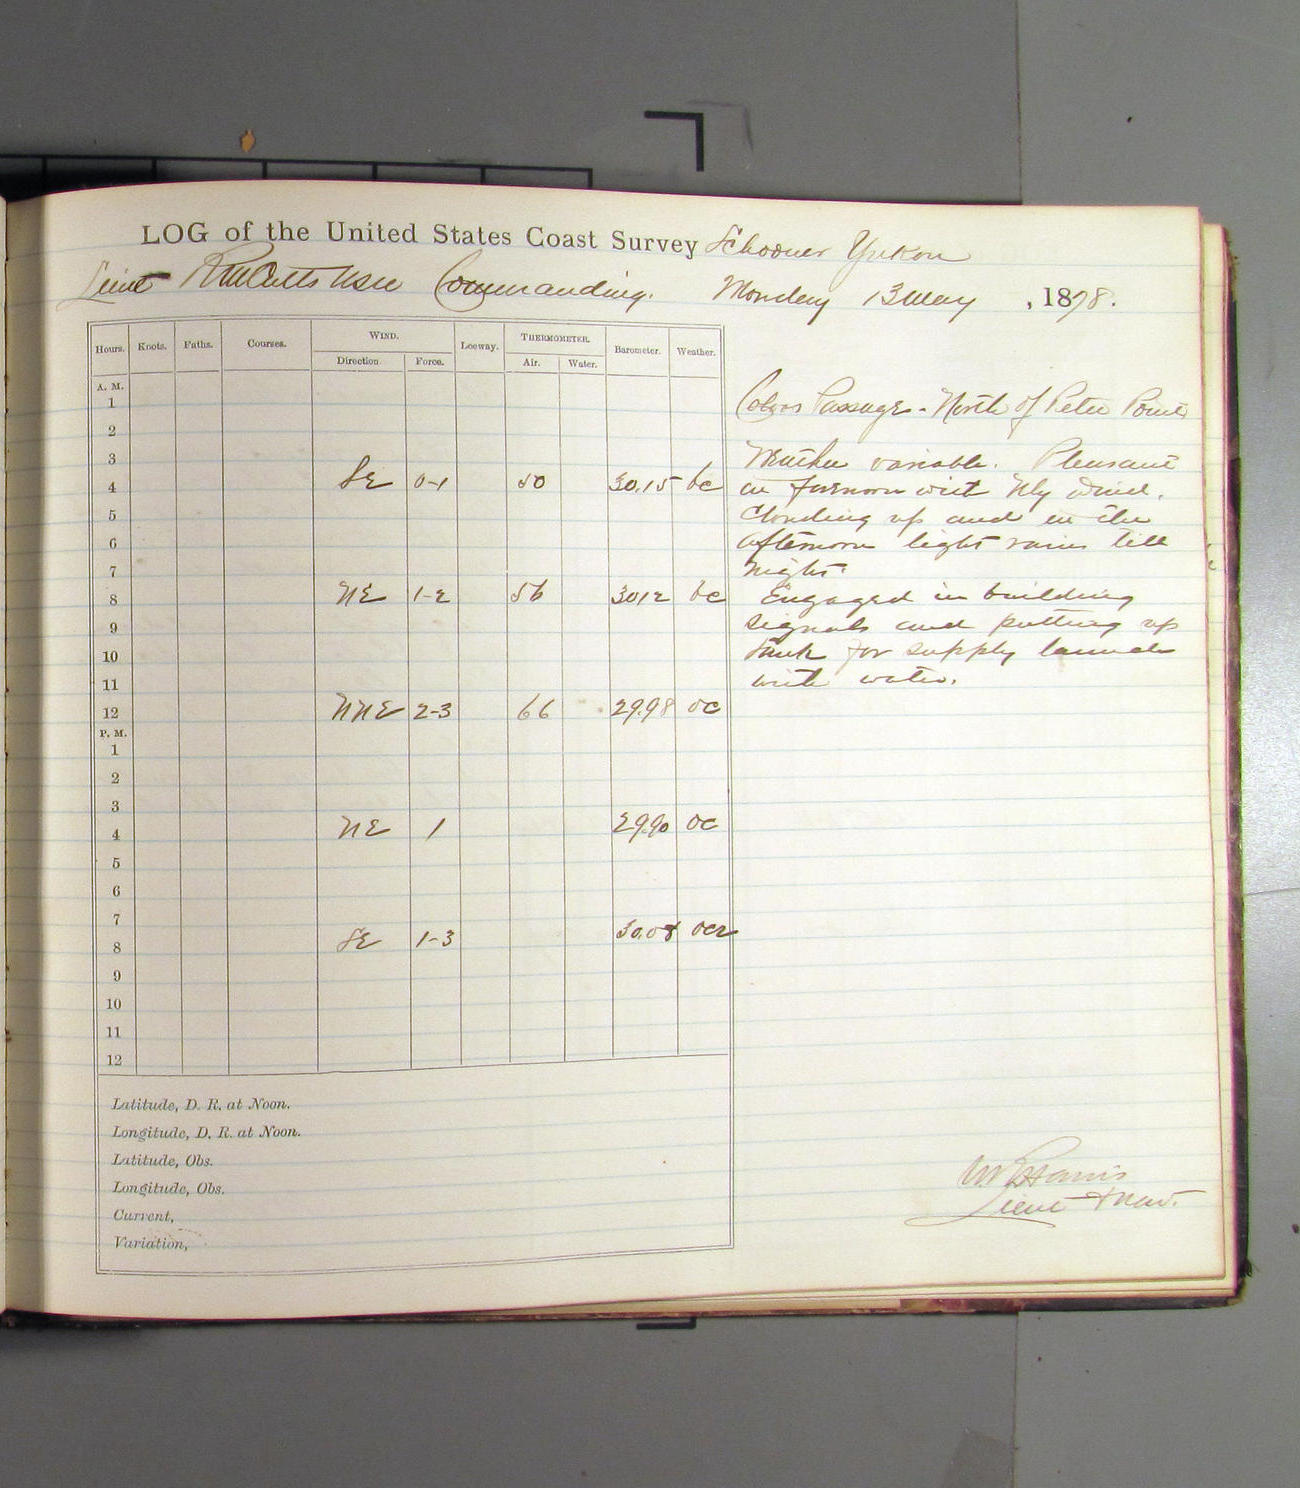 LOG of the United States Coast Survey Schooner Yukon
Lieut R M Cutts USN Commanding. Monday 13 May, 1878.
Hours. Knots. Faths. Courses. WIND. Leeway. THERMOMETER. Barometer. Weather.
Direction. Force. Air. Water.
A. M.
1
2
3
4 SE 0-1 50 30.15 bc
5
6
7
8 NE 1-2 56 3012 bc
9
10
11
12 NNE 2-3 66 29.98 oc
P. M.
1
2
3
4 NE 1 29.90 oc
5
6
7
8 SE 1-3 30.08 ocr
9
10
11
12
Colvos Passage - North of Peter Point
Weather variable. Pleasant
in forenoon with Nly wind.
Clouding up and in the
afternoon light rains till
night.
Engaged in building
signals and putting up
tank for supply launch
with water.
Latitude, D. R. at Noon.
Longitude, D. R. at Noon.
Latitude, Obs.
Longitude, Obs.
Current,
Variation,
Lieut